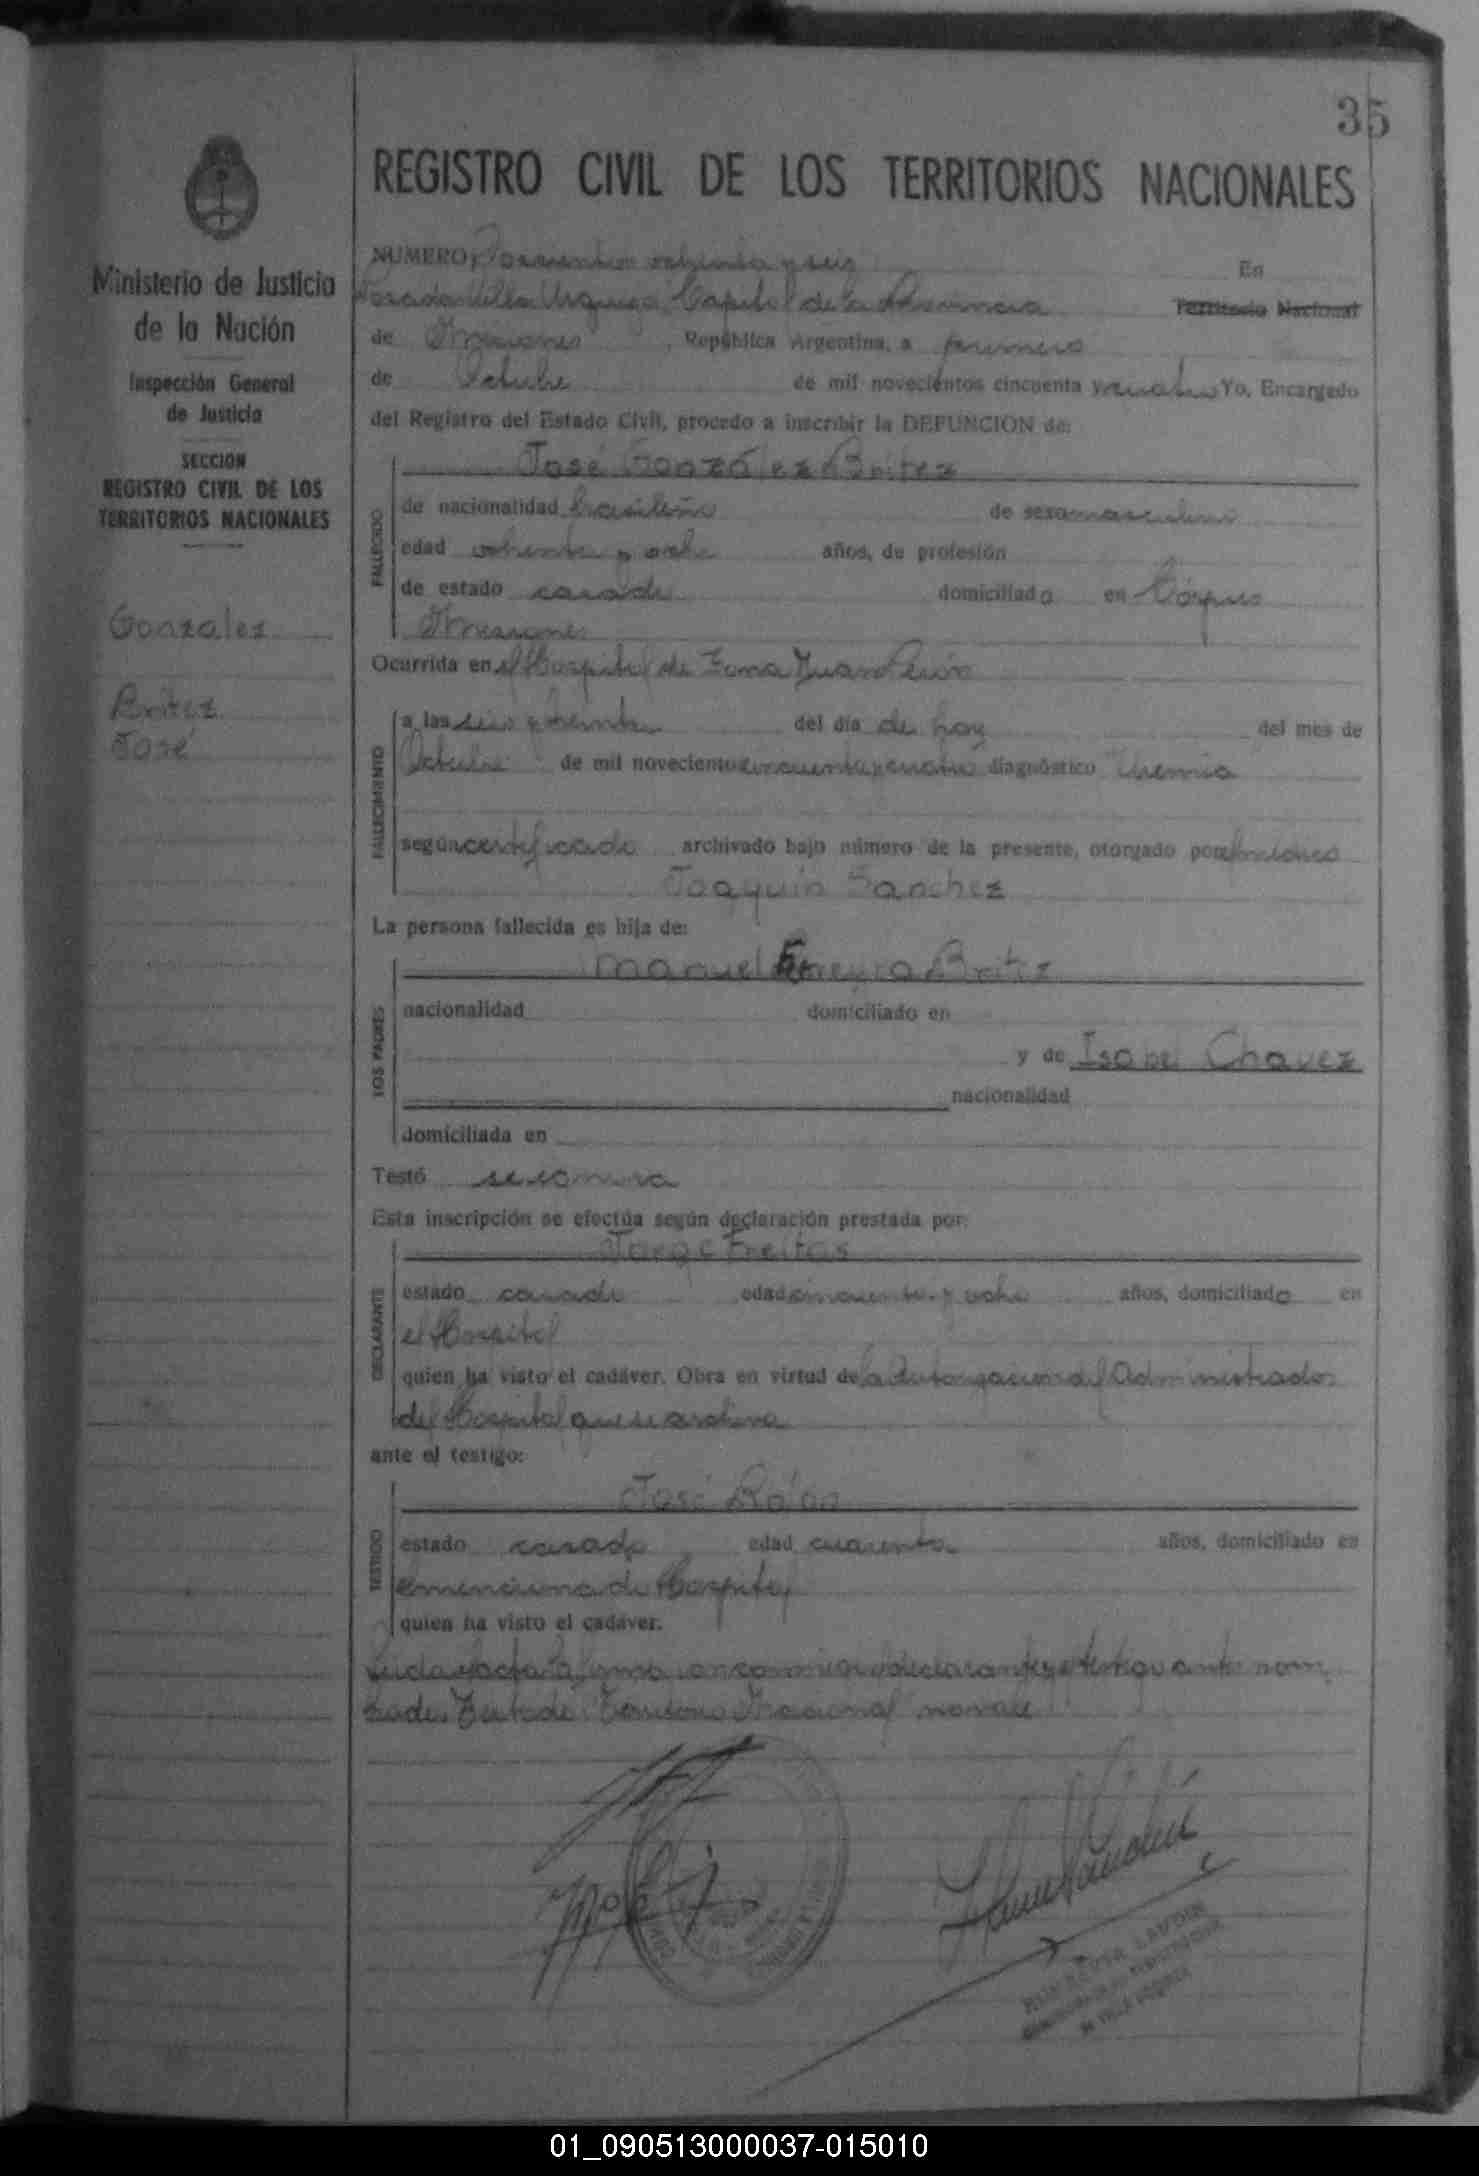 35
REGISTRO CIVIL DE LOS TERRITORIOS NACIONALES
Ministerio de Justicia
de la Nación
Inspección General
de Justicia
SECCION
REGISTRO CIVIL DE LOS
TERRITORIOS NACIONALES
Gonzalez
Britez
José
NUMERO Doscientos ochenta y seis En
Posadas Villa Urquiza Capital de la Provincia Territorio Nacional
de Misiones, República Argentina, a primero
de Octubre de mil novecientos cincuenta y cuatro Yo, Encargado
del Registro del Estado Civil, procedo a inscribir la DEFUNCION de:
José González Britez
FALLECIDO
de nacionalidad brasileña de sexo masculino
edad ochenta y ocho años, de profesión
de estado casado domiciliado en Córpus
Misiones
Ocurrida en el Hospital de Zona Juan Perón
FALLECIMIENTO
a las seis y treinta del día de hoy del mes de
Octubre de mil novecientos cincuenta y cuatro diagnóstico Uremia
según certificado archivado bajo número de la presente, otorgado por el médico
Joaquín Sanchez
La persona fallecida es hija de:
LOS PADRES
Manuel Britez
nacionalidad domiciliado en
y de Isabel Chavez
nacionalidad
domiciliada en
Testó se ignora
Esta inscripción se efectúa según declaración prestada por:
Jorge Freitas
DECLARANTE
estado casado edad cincuenta y ocho años, domiciliado en
el Hospital
quien ha visto el cadáver. Obra en virtud de la Autorización del Administrador
del Hospital que se archiva
ante el testigo:
José Rolón
TESTIGO
estado casado edad cuarenta años, domiciliado en
el mencionado Hospital
quien ha visto el cadáver.
Leida el acta la firma conmigo el declarante y el testigo ante nom
brados Testado: Territorio Nacional no vale
DE VILLA URQUIZA
01_090513000037-015010